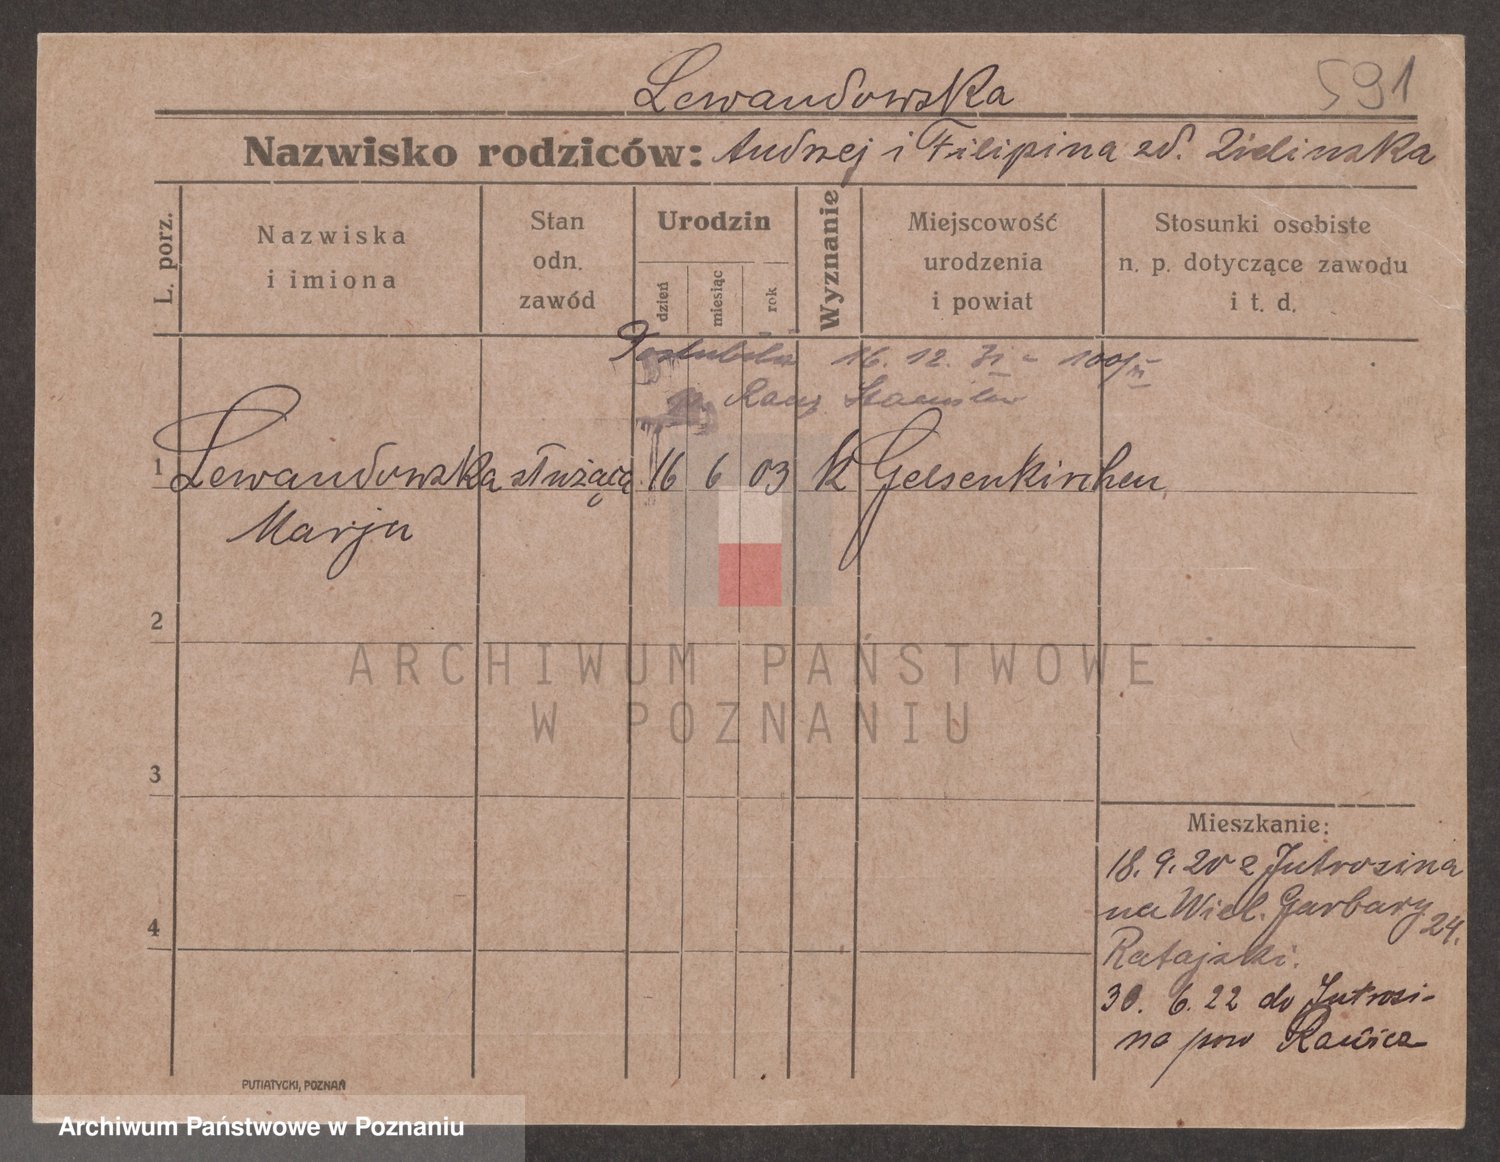 Lewandowska
591
Nazwisko rodziców: Andrzej i Filipina zd. Zielinska
L. porz.
Nazwiska
i imiona
Stan
odn.
zawód
Urodzin
dzień
miesiąc
rok
Wyznanie
Miejscowość
urodzenia
i powiat
Stosunki osobiste
n. p. dotyczące zawodu
i t. d.
Poślubiła 16. 12.
Stanisław
1 Lewandowska służąca 16 6 03 k Gelsenkirchen
Marja
2
3
4
Mieszkanie:
18. 9. 20 z Jutrosina
na Wiel. Garbary 24.
Ratajski.
30. 6. 22 do Jutrosi-
na pow Rawicz
PUTIATYCKI, POZNAŃ
ARCHIWUM PAŃSTWOWE
W POZNANIU
Archiwum Państwowe w Poznaniu